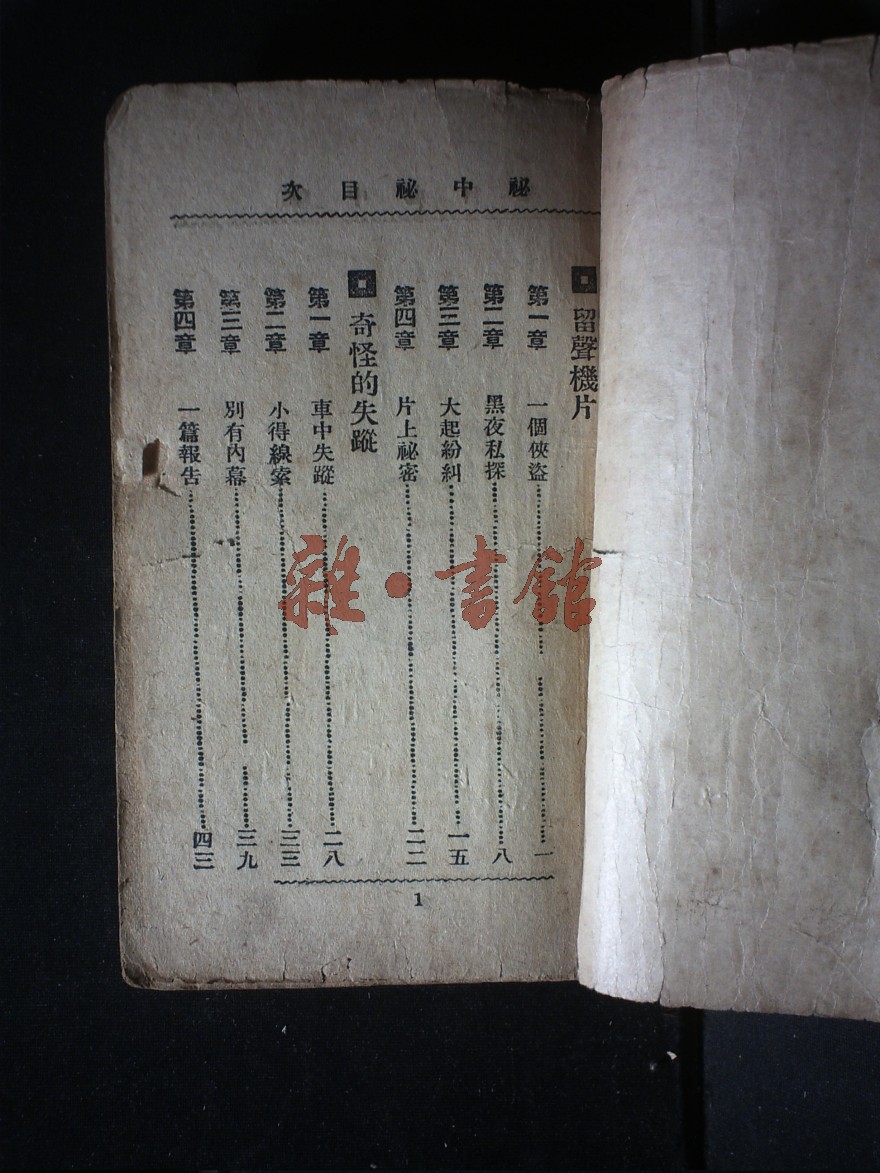 祕中祕目次
留聲機片
第一章 一個俠盜 一
第二章 黑夜私探 八
第三章 大起紛糾 一五
第四章 片上祕密 二二
奇怪的失蹤
第一章 車中失蹤 二八
第二章 小得線索 三三
第三章 別有內幕 三九
第四章 一篇報告 四三
1
雜·書館